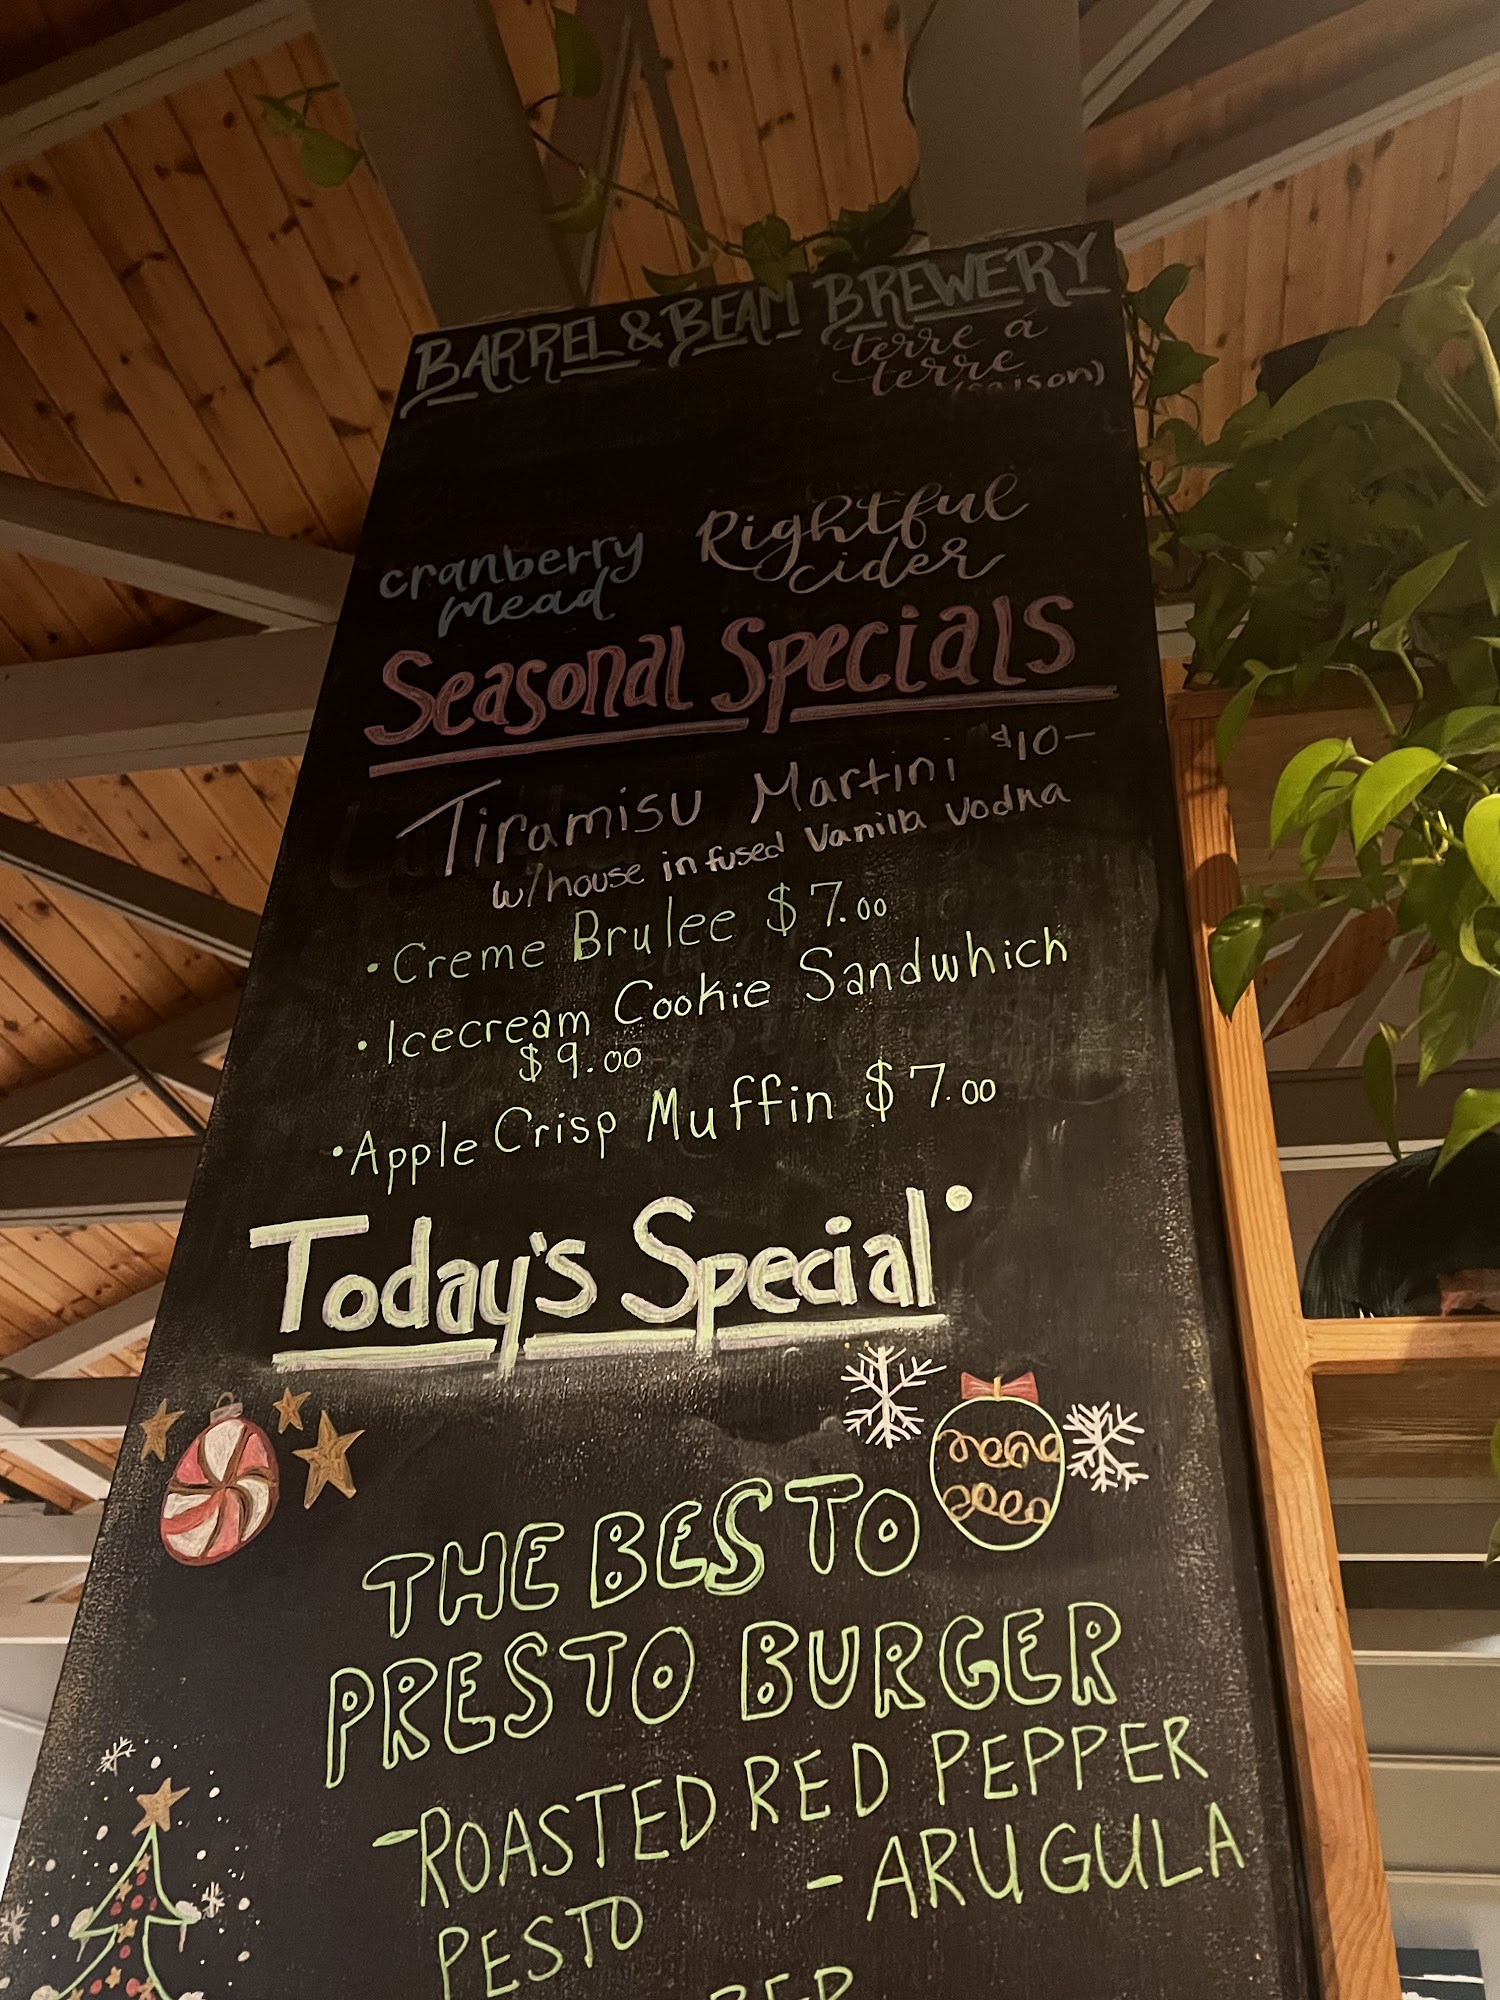 BARREL & BEAM BREWERY
terre á
terre
(saison)
cranberry
mead
Rightful
cider
Seasonal Specials
Tiramisu Martini $10-
w/house infused Vanilla Vodka
• Creme Brulee $7.00
• Icecream Cookie Sandwhich
$9.00
• Apple Crisp Muffin $7.00
Today's Special
THE BESTO
PRESTO BURGER
-ROASTED RED PEPPER
PESTO
- ARUGULA